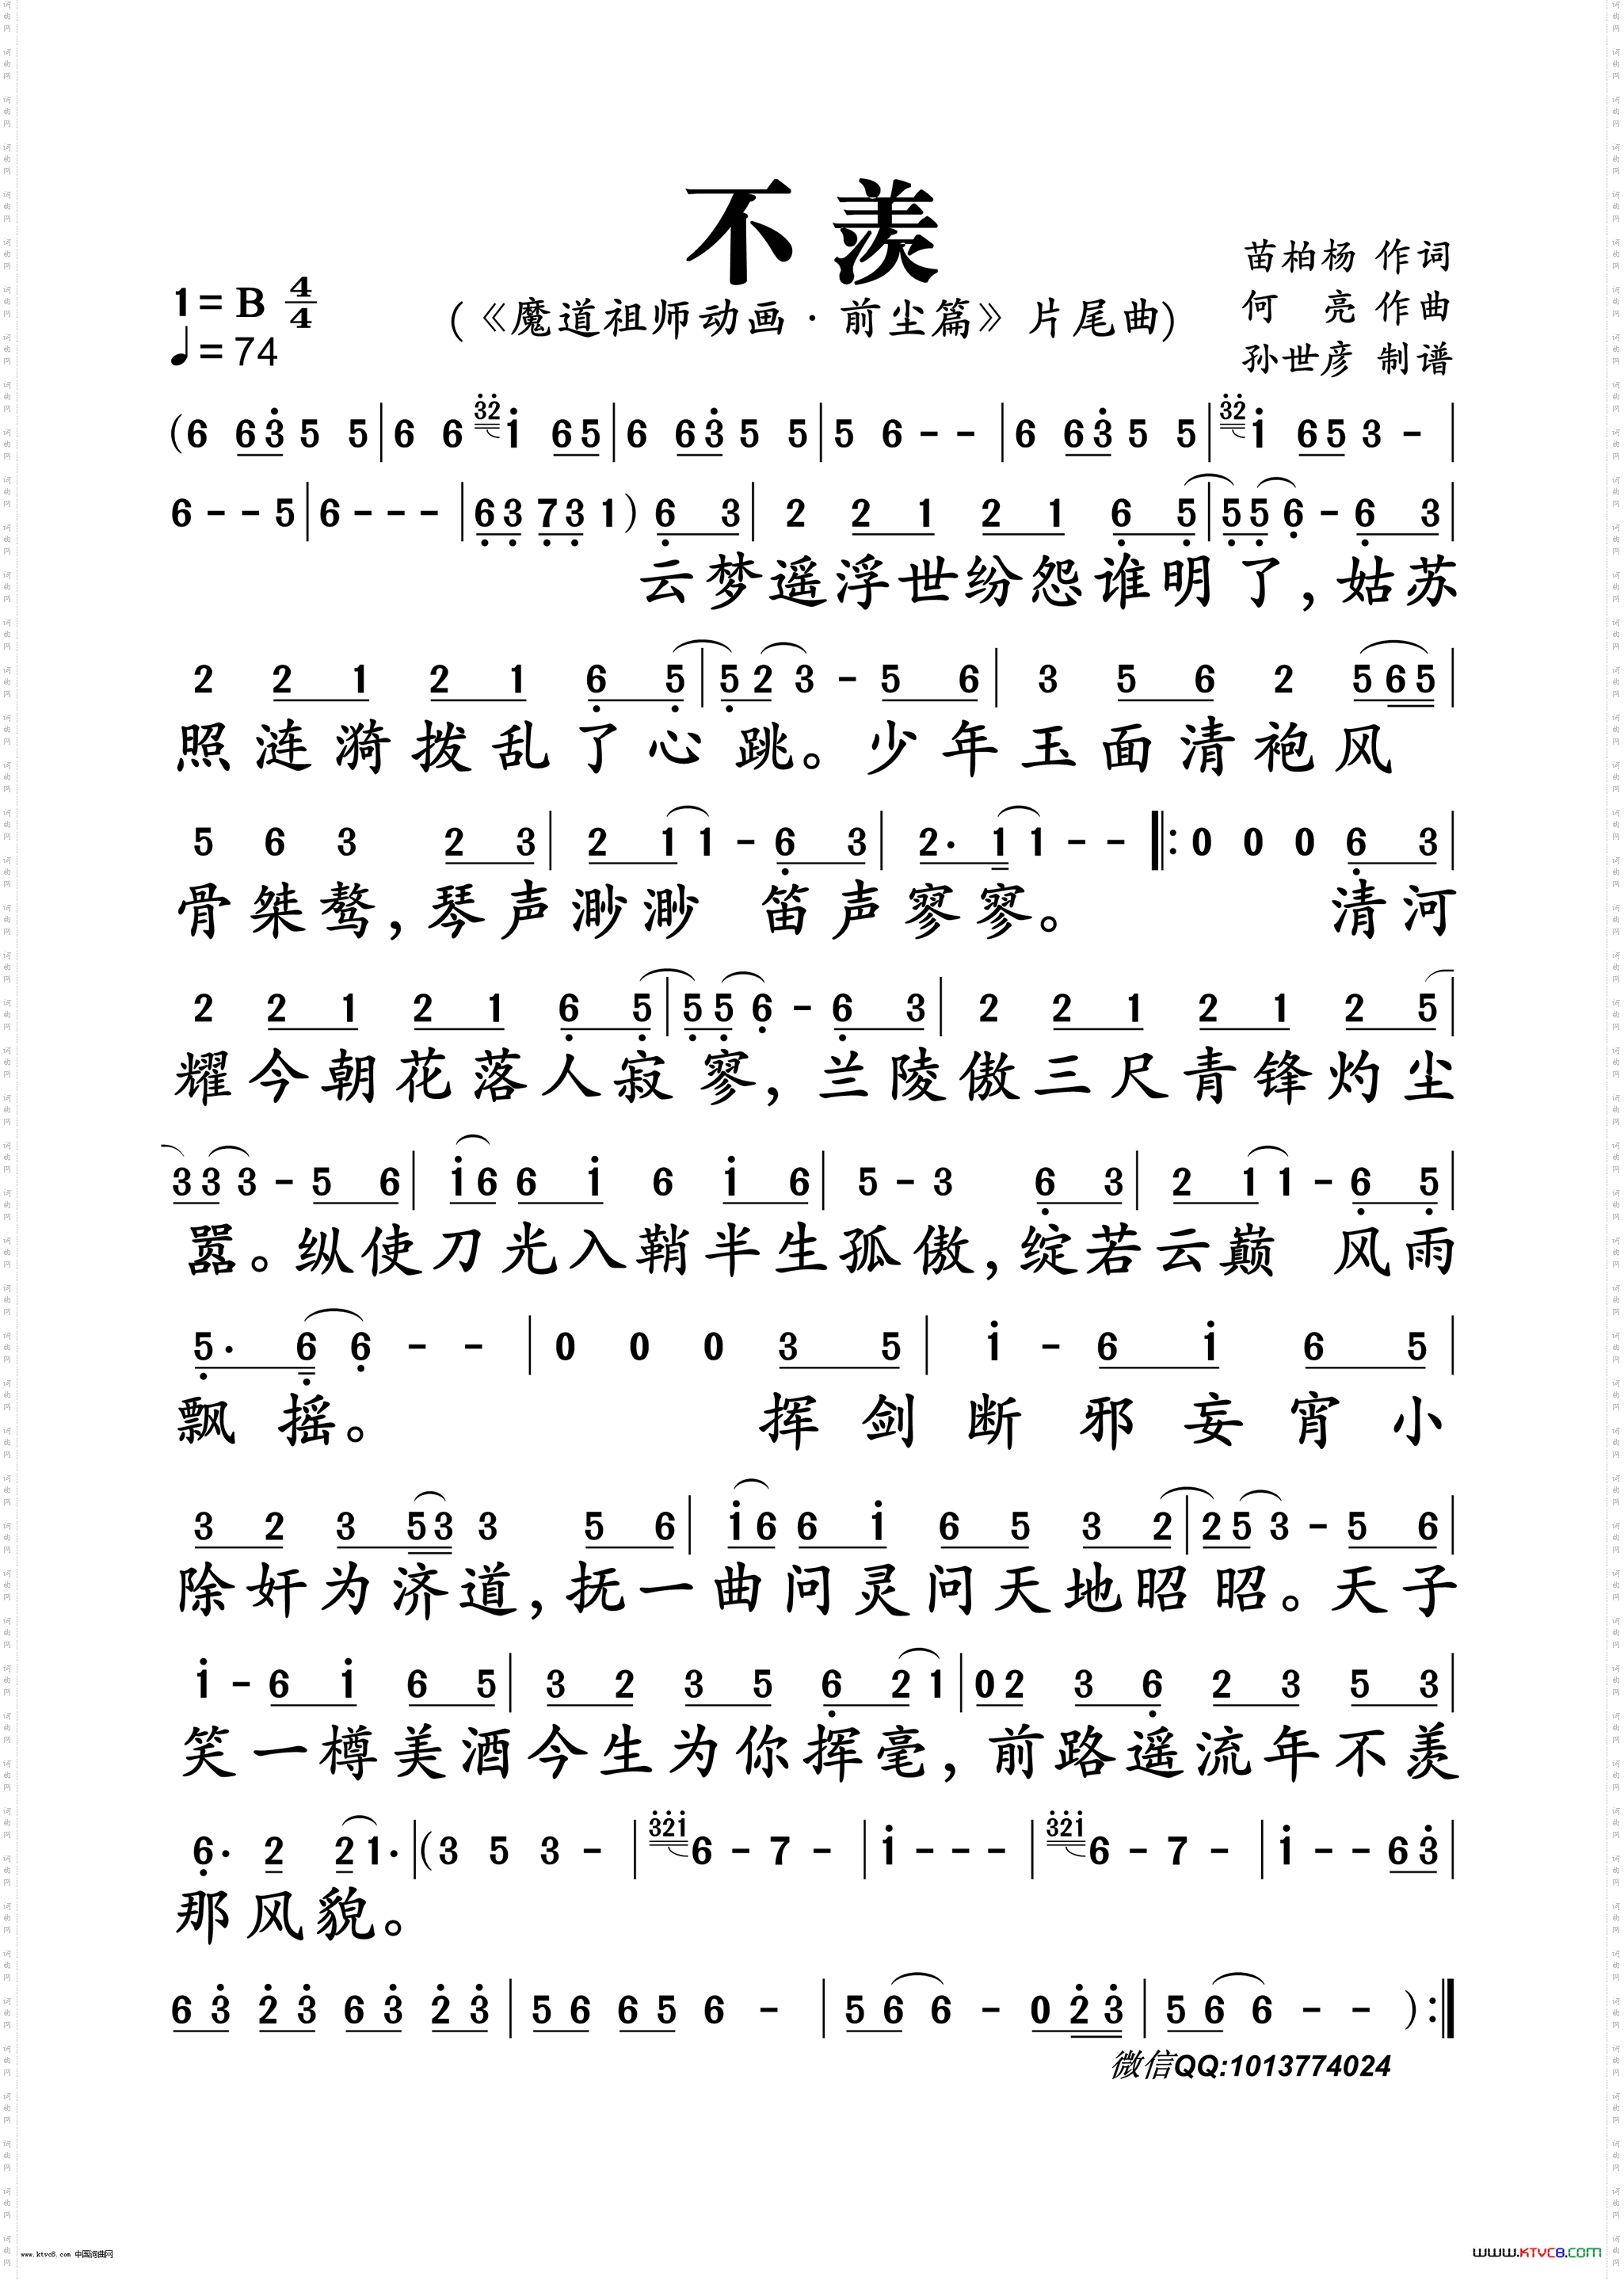 不羡
苗柏杨 作词
1=B 4/4
(《魔道祖师动画·前尘篇》片尾曲)
何 亮 作曲
♩=74
孙世彦 制谱
(6 63̇ 5 5|6 6 3̇2̇1̇ 65|6 63̇ 5 5|5 6 - -|6 63̇ 5 5|3̇2̇1̇ 65 3 -|
6 - - 5|6 - - -|6̣3̣ 7̣3̣ 1) 6̣ 3|2 2 1 2 1 6̣ 5̣|5̣5̣ 6̣ - 6̣ 3|
云梦遥浮世纷怨谁明了,姑苏
2 2 1 2 1 6̣ 5̣|5̣2 3 - 5 6|3 5 6 2 565|
照涟漪拨乱了心跳。少年玉面清袍风
5 6 3 2 3|2 1 1 - 6̣ 3|2· 1 1 - -|:0 0 0 6̣ 3|
骨桀骜,琴声渺渺 笛声寥寥。 清河
2 2 1 2 1 6̣ 5̣|5̣5̣ 6̣ - 6̣ 3|2 2 1 2 1 2 5|
耀今朝花落人寂寥,兰陵傲三尺青锋灼尘
33 3 - 5 6|1̇6 6 1̇ 6 1̇ 6|5 - 3 6̣ 3|2 1 1 - 6̣ 5̣|
嚣。纵使刀光入鞘半生孤傲,绽若云巅 风雨
5̣· 6̣ 6̣ - -|0 0 0 3 5|1̇ - 6 1̇ 6 5|
飘摇。 挥剑断邪妄宵小
3 2 3 53 3 5 6|1̇6 6 1̇ 6 5 3 2|25 3 - 5 6|
除奸为济道,抚一曲问灵问天地昭昭。天子
1̇ - 6 1̇ 6 5|3 2 3 5 6̣ 2 1|02 3 6̣ 2 3 5 3|
笑一樽美酒今生为你挥毫,前路遥流年不羡
6̣· 2 2 1·|(3 5 3 -|3̇2̇1̇6 - 7 -|1̇ - - -|3̇2̇1̇6 - 7 -|1̇ - - 63̇|
那风貌。
63̇ 2̇3̇ 63̇ 2̇3̇|56 65 6 -|56 6 - 02̇3̇|56 6 - -):|
微信QQ:1013774024
www.ktvc8.com 中国词曲网
WWW.KTVC8.COM